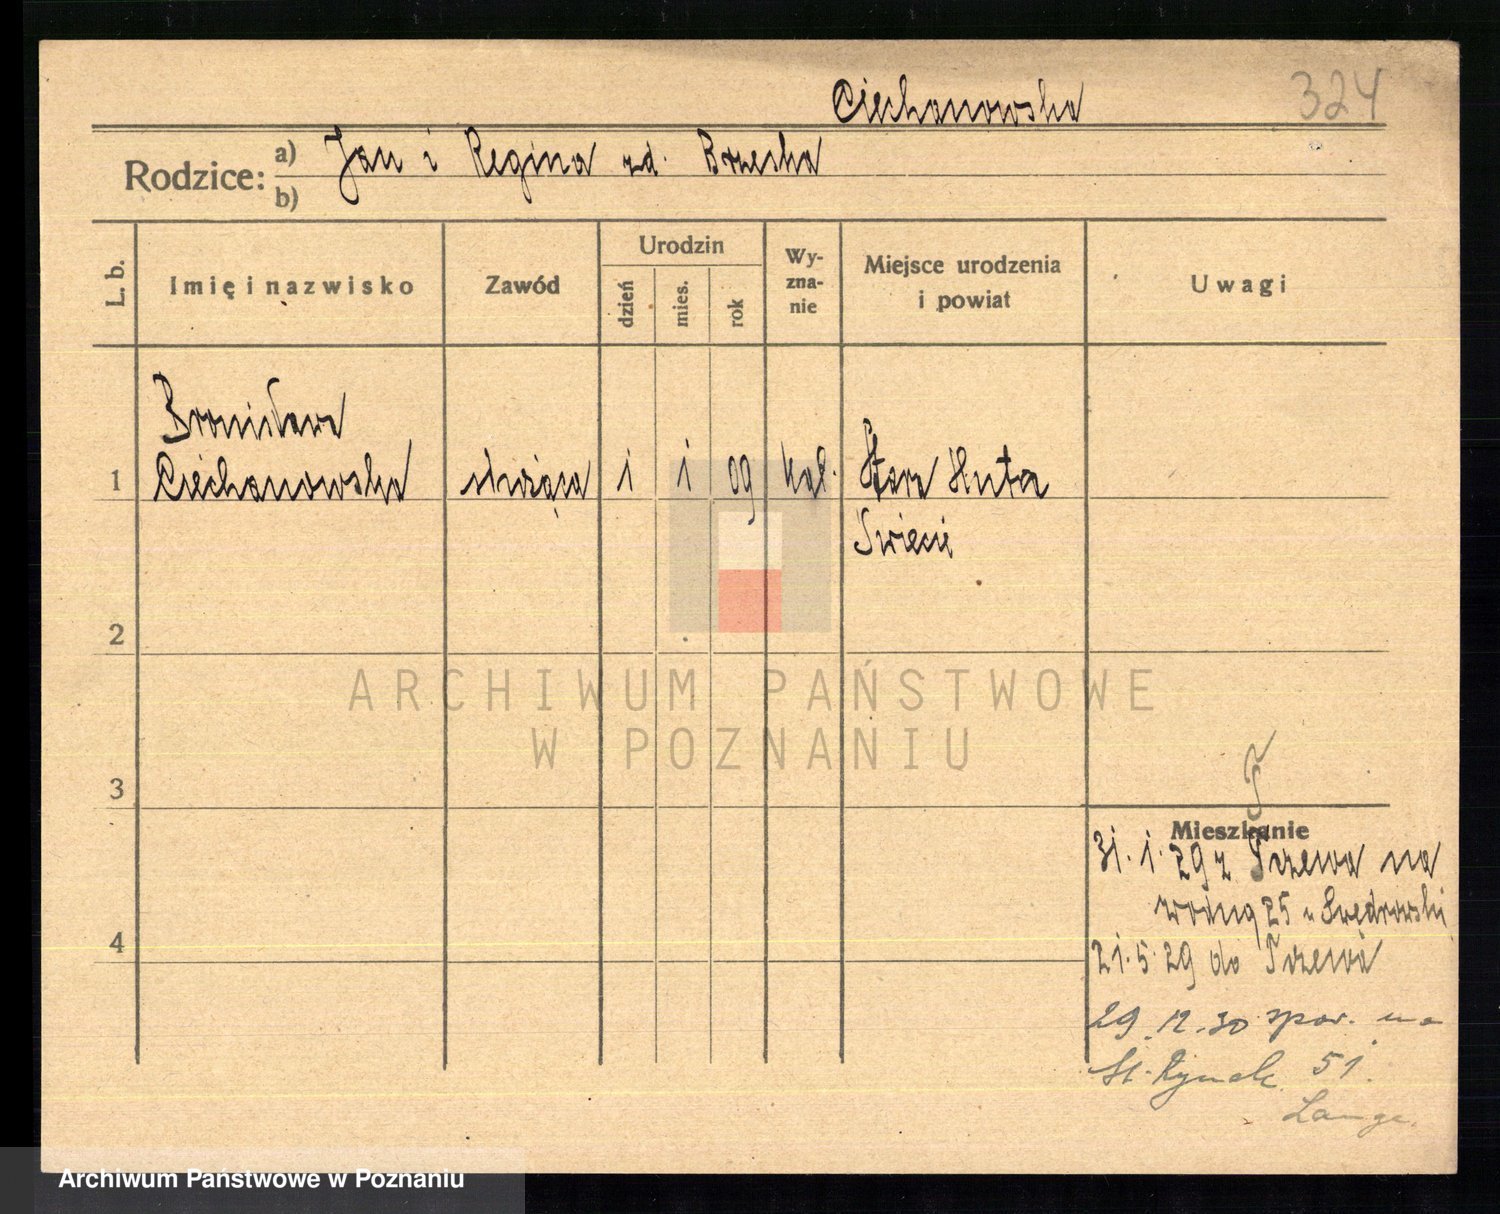 Ciechanowska
324
Rodzice:
a) Jan i Regina zd. Brzeska
b)
L. b.
Imię i nazwisko
Zawód
Urodzin
dzień
mies.
rok
Wy-
zna-
nie
Miejsce urodzenia
i powiat
Uwagi
Bronisława
1 Ciechanowska służąca 1 1 09 kat. Stara Huta
Swiecie
2
ARCHIWUM PAŃSTWOWE
W POZNANIU
3
Mieszkanie
31.1.29 z Tczewa na
wodną 25
4
21.5.29 do Tczewa
29.12.30 spow. na
St. Rynek 51.
Lange.
Archiwum Państwowe w Poznaniu